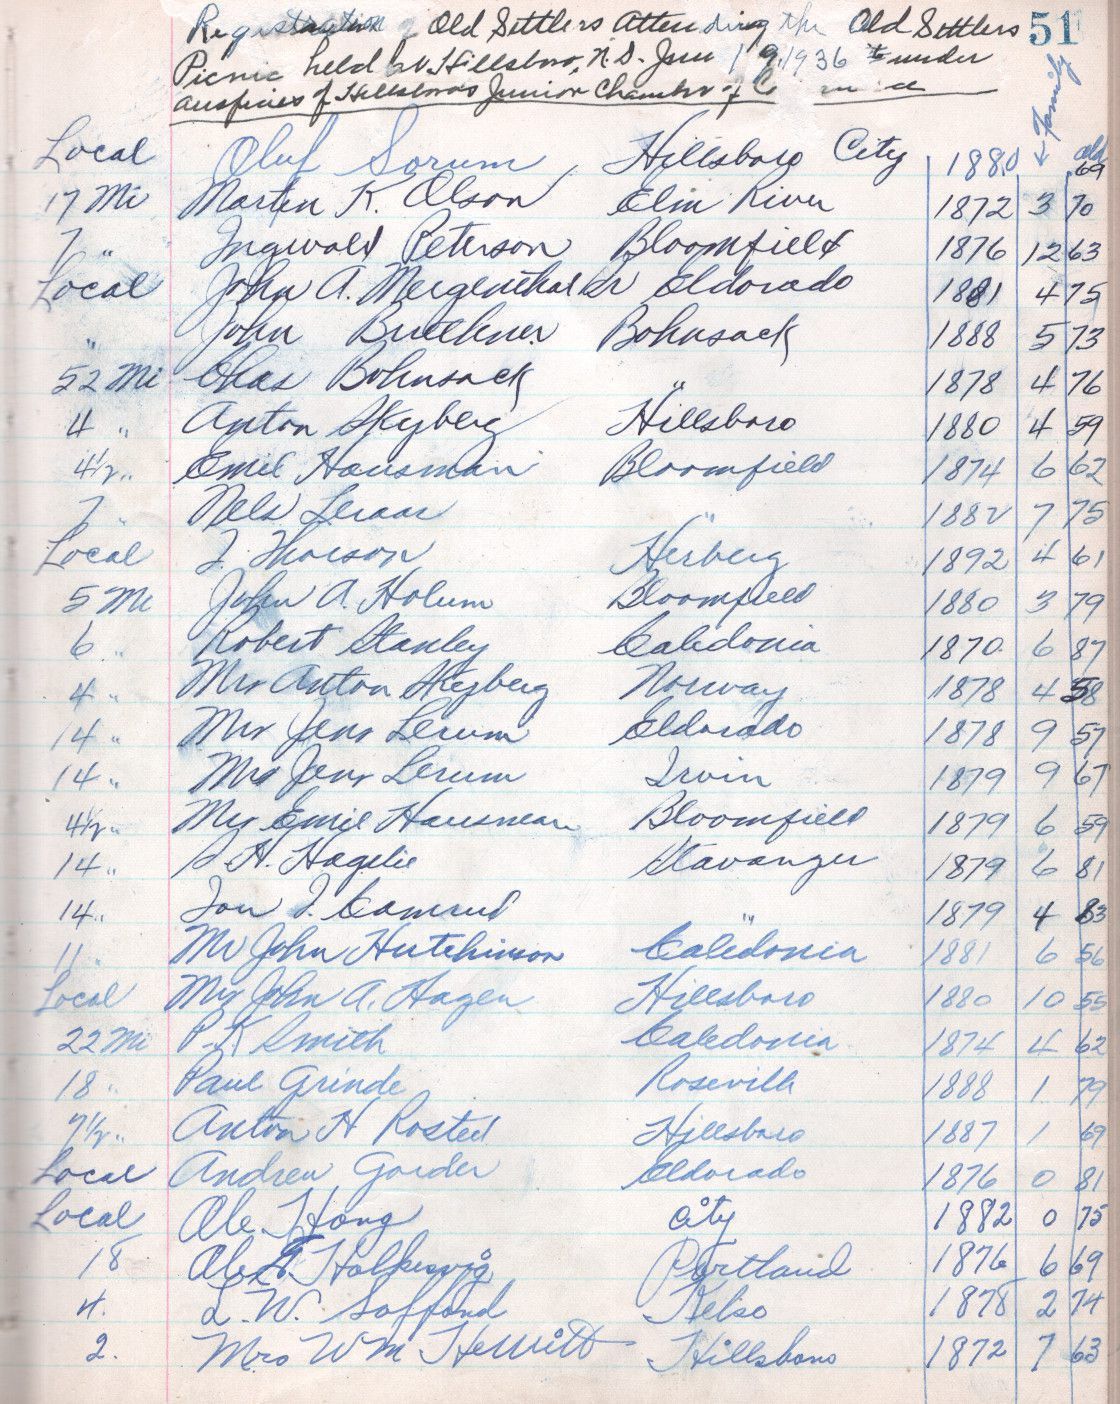 Registration of Old Settlers Attending the Old Settlers 51
Picnic held at Hillsboro, N.D. June 19, 1936 under
auspicies of Hillsboros Junior Chamber of
Family
Old
Local Oluf Sorum Hillsboro City 1880 69
17 Mi Marten K. Olson Elm River 1872 3 70
7 " Ingwald Peterson Bloomfield 1876 12 63
Local John A. Mergenthal Eldorado 1881 4 75
" John Brueckner Bohnsack 1888 5 73
52 Mi Chas Bohnsack " 1878 4 76
4 " Anton Skyberg Hillsboro 1880 4 59
4 1/2 " Emil Hausman Bloomfield 1874 6 62
7 " Nels Leraas " 1882 7 75
Local T. Thorson Herberg 1892 4 61
5 Mi John A. Holum Bloomfield 1880 3 79
6 " Robert Stanley Caledonia 1870 6 87
4 " Mrs Anton Skyberg Norway 1878 4 58
14 " Mr Jens Lerum Eldorado 1878 9 57
14 " Mrs Jens Lerum Irvin 1879 9 67
4 1/2 " Mrs Emil Hausman Bloomfield 1879 6 59
14 " H. Hagelie Stavanger 1879 6 81
14 " T. Camrud " 1879 4 83
11 " Mr John Hutchinson Caledonia 1881 6 56
Local Mrs John A. Hagen Hillsboro 1880 10 55
22 Mi P. K Smith Caledonia 1874 4 62
18 " Paul Grinde Roseville 1888 1 79
7 1/2 " Anton H Rosted Hillsboro 1887 1 69
Local Andrew Gorder Eldorado 1876 0 81
Local Ole Hong City 1882 0 75
18 Ole Portland 1876 6 69
4. L. W. Safford Kelso 1878 2 74
2. Mrs Wm Hewitt Hillsboro 1872 7 63